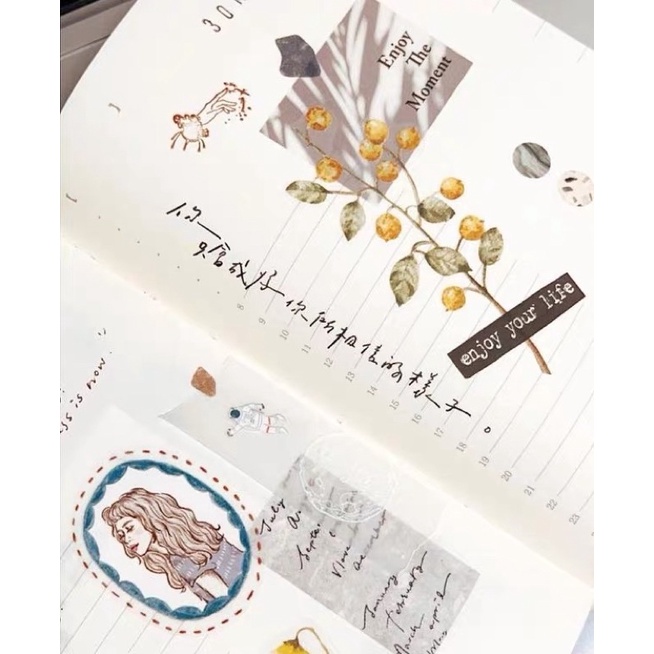 30
Enjoy
The
Moment
你
只會成為你所相信的樣子。
enjoy your life
8
9
10
11
12
13
14
15
16
17
18
19
20
21
22
23
is now.
July
January
February
March april